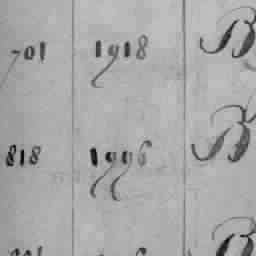 701 1918 B
818 1996 B
B